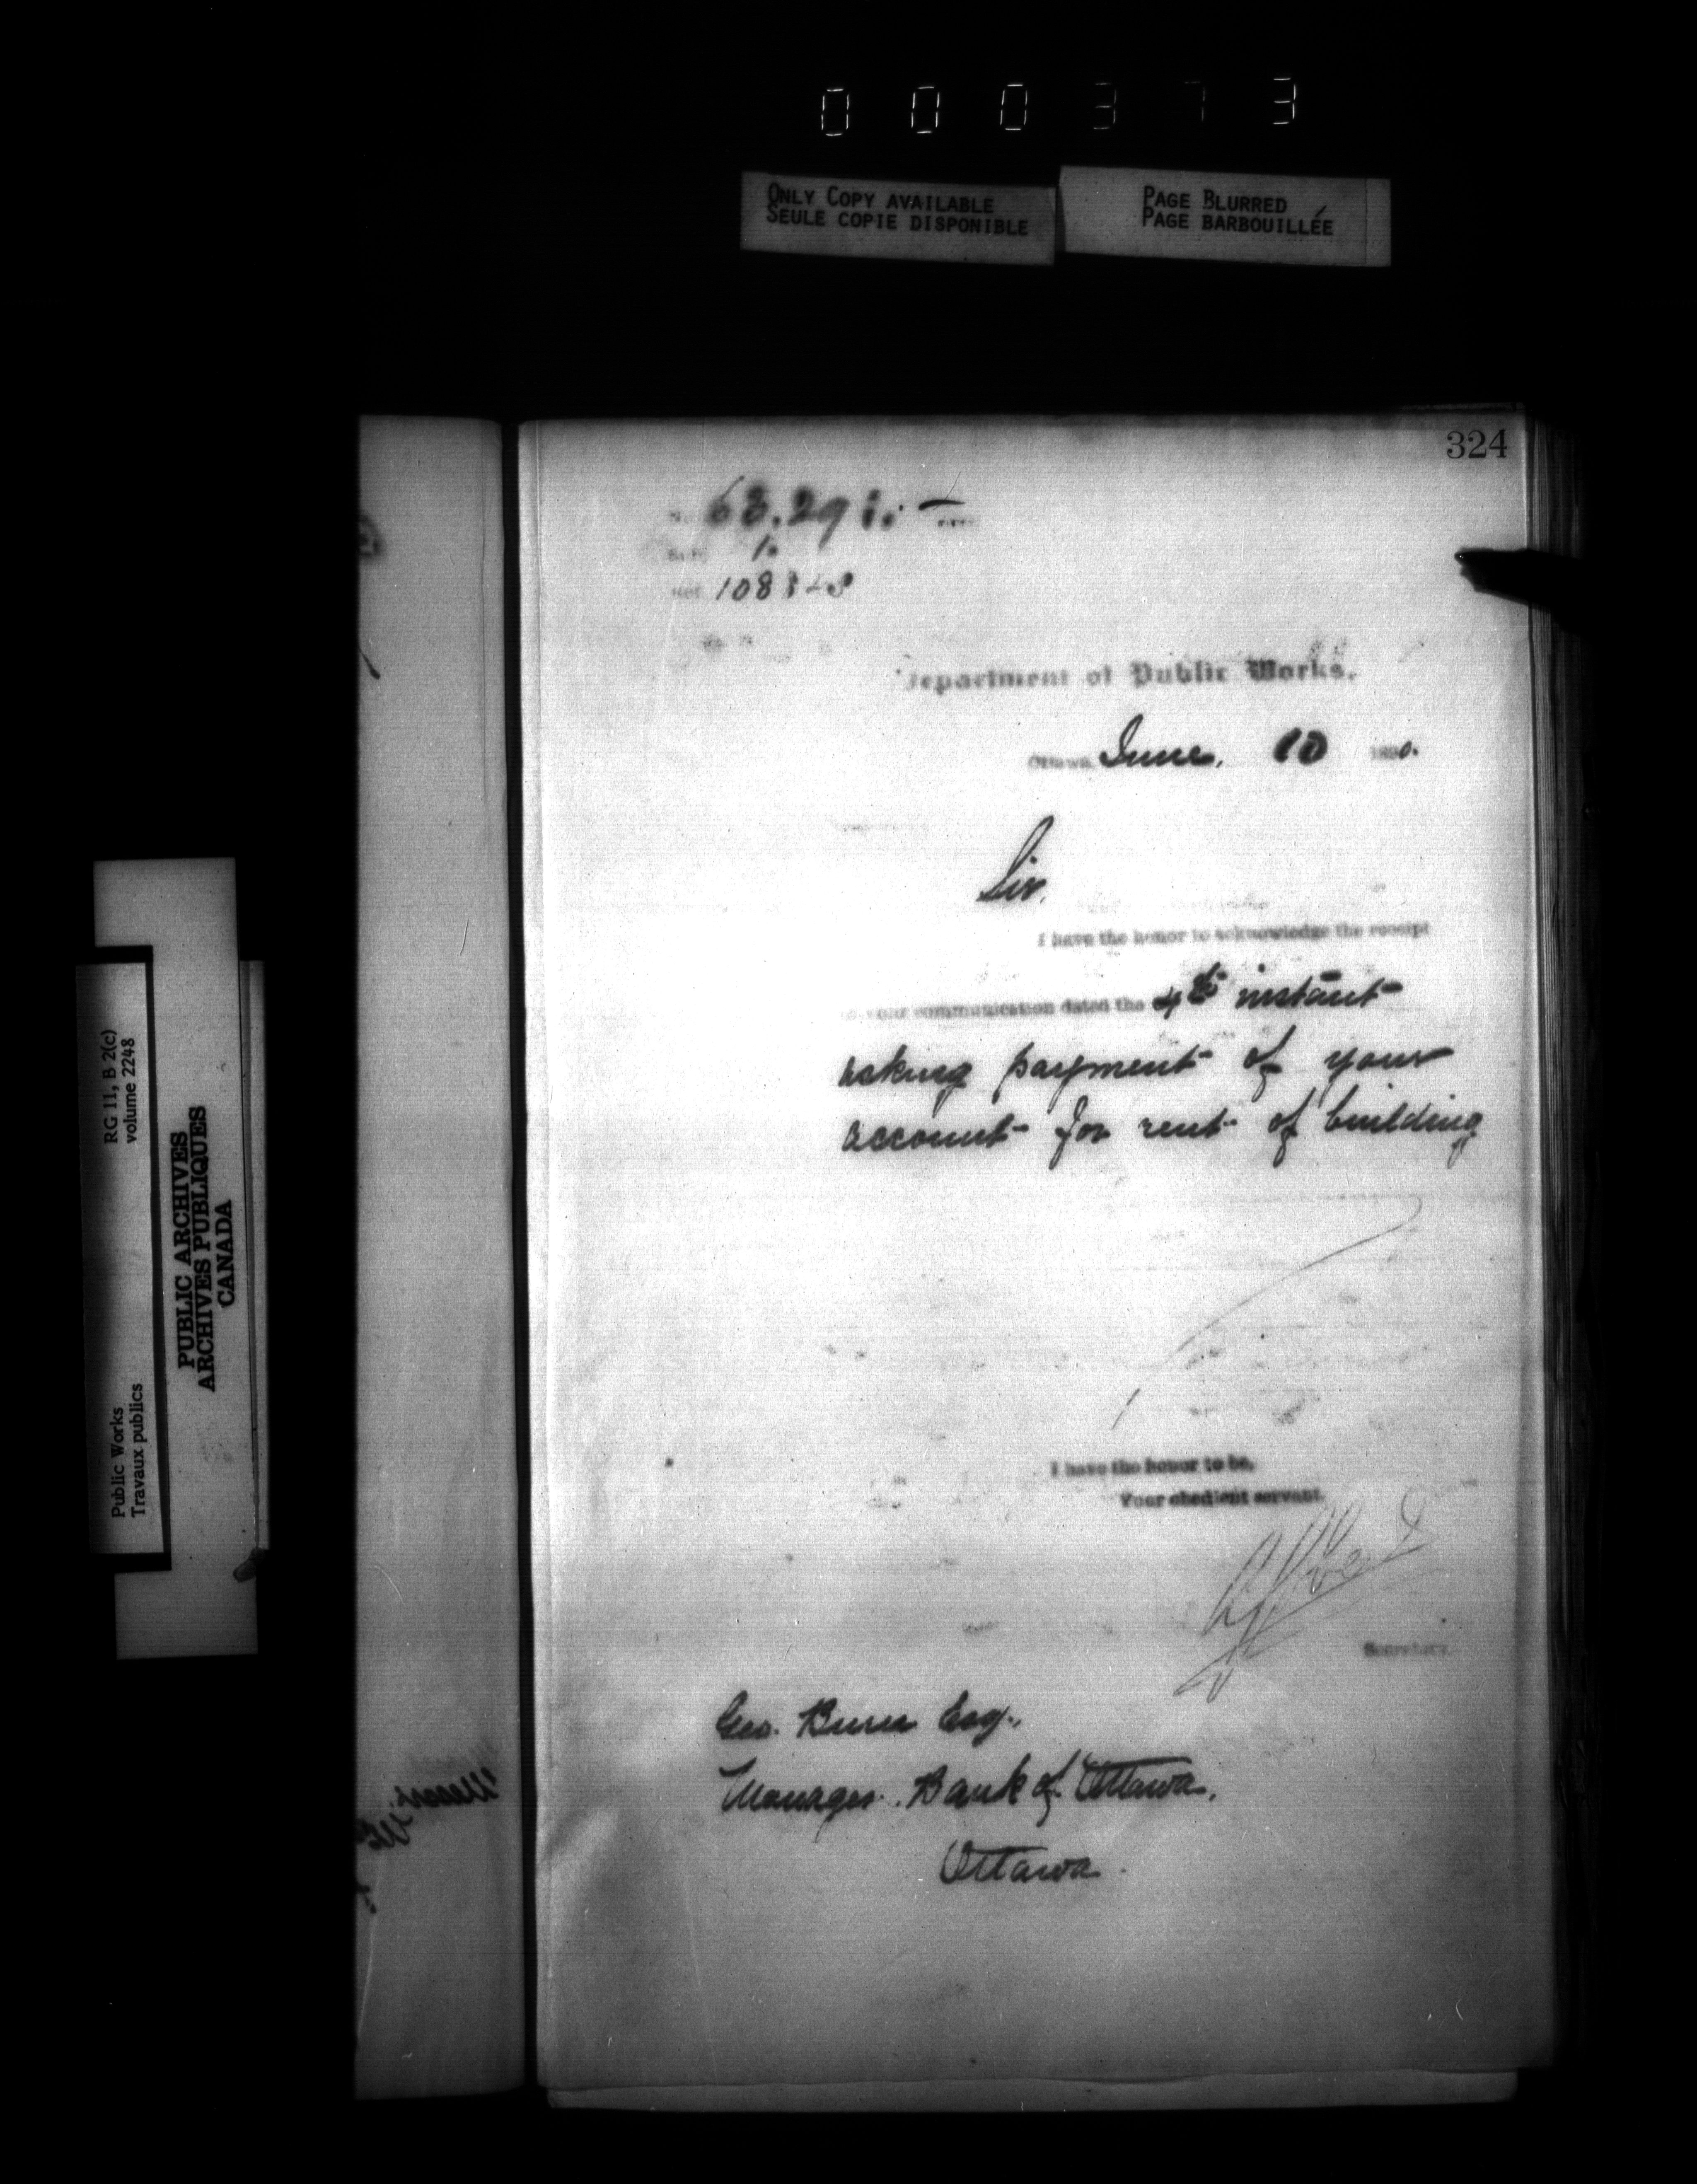 000373
ONLY COPY AVAILABLE
SEULE COPIE DISPONIBLE
PAGE BLURRED
PAGE BARBOUILLÉE
324
No.
Subj. 1.
Ref.
Department of Public Works.
Ottawa, June, 10 1890.
Sir,
I have the honor to acknowledge the receipt
of your communication dated the 4th instant
asking payment of your
account for rent of building
I have the honor to be,
Your obedient servant,
Secretary.
Geo. Burn Esq.,
Manager. Bank of Ottawa,
Ottawa.
RG 11, B 2(c)
volume 2248
PUBLIC ARCHIVES
ARCHIVES PUBLIQUES
CANADA
Public Works
Travaux publics